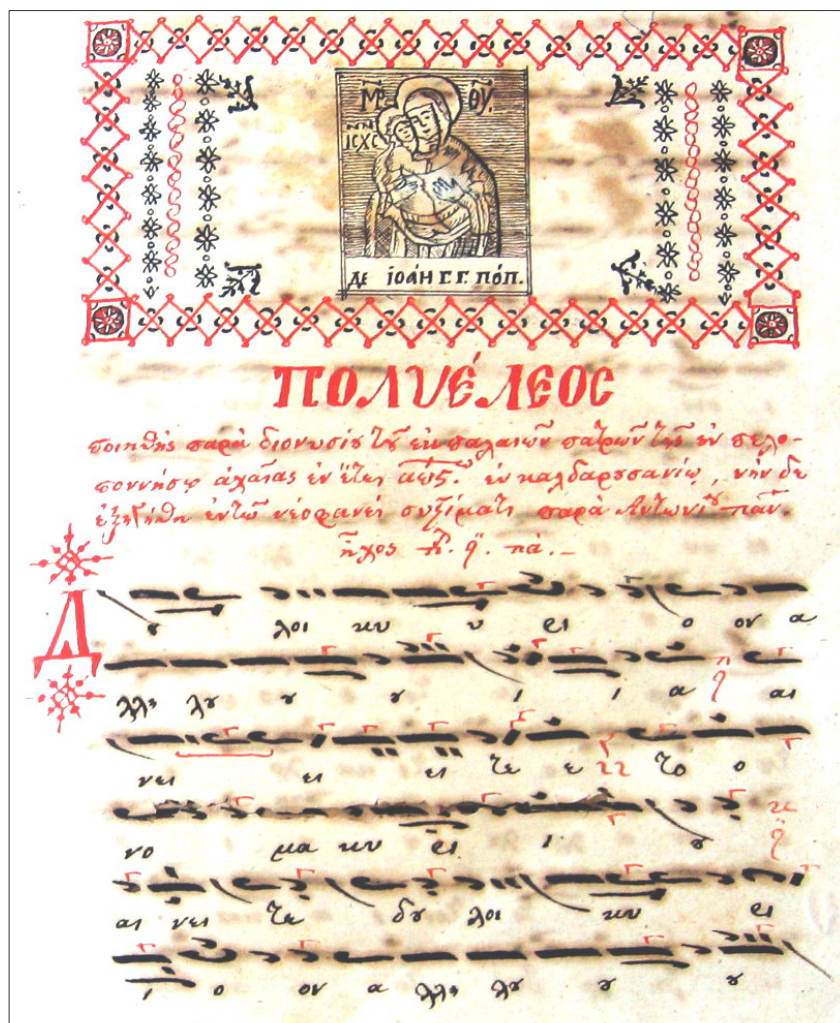 ΜΡ ΘΥ
ICXC
ΔΕ ΙΟΆΝ Γ. Γ. ΠΌΠ.
ΠΟΛΥΈΛΕΟC
παρὰ διονυσίου τοῦ ἐκ παλαιῶν πατρῶν τῆς ἐν πελο-
ποννήσῳ ἀχαΐας ἐν ἔτει αωϛ. ἐν καλδαρυσανίῳ, νῦν δὲ
ἐξηγήθη ἐν τῷ νεοφανεῖ παρὰ Ἀντωνίου παν.
ἦχος πλ. q̈. πὰ.–
Δ ȣ λοι κυ υ ει ο ον α
λλη λȣ ȣ ȣ ι ι α αι
νει ει ει τε ε το ο
νο μα κυ ει ι ȣ
αι νει τε δȣ λοι κυ ει
ι ο ον α λλη λȣ ȣ ȣ